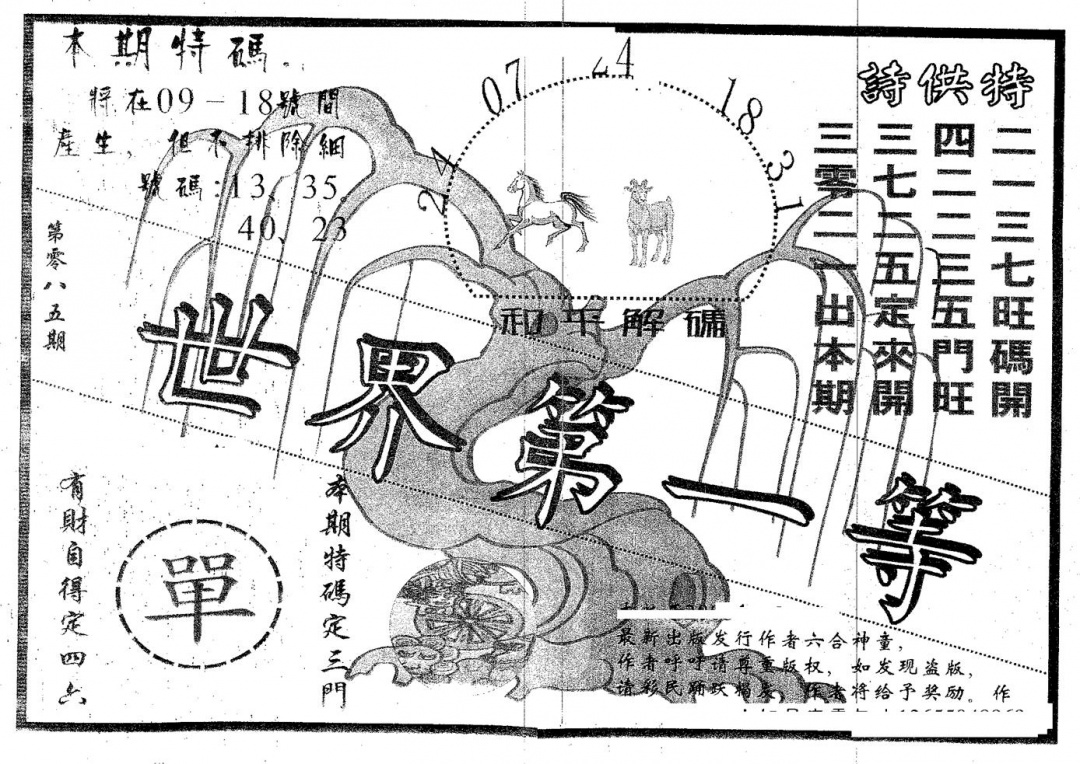 本期特碼。
將在09－18號間
產生，但不排除細
號碼:13、35、
40、23
第零八五期
07
24
18
31
24
和平解碼
特供詩
二一三七旺碼開
四二二三五門旺
三七二五定來開
三零二一出本期
世界第一等
有財自得定四六
單
本期特碼定三門
最新出版发行作者六合神童，
作者呼吁请尊重版权，如发现盗版，
请彩民踊跃揭发，作者将给予奖励。作